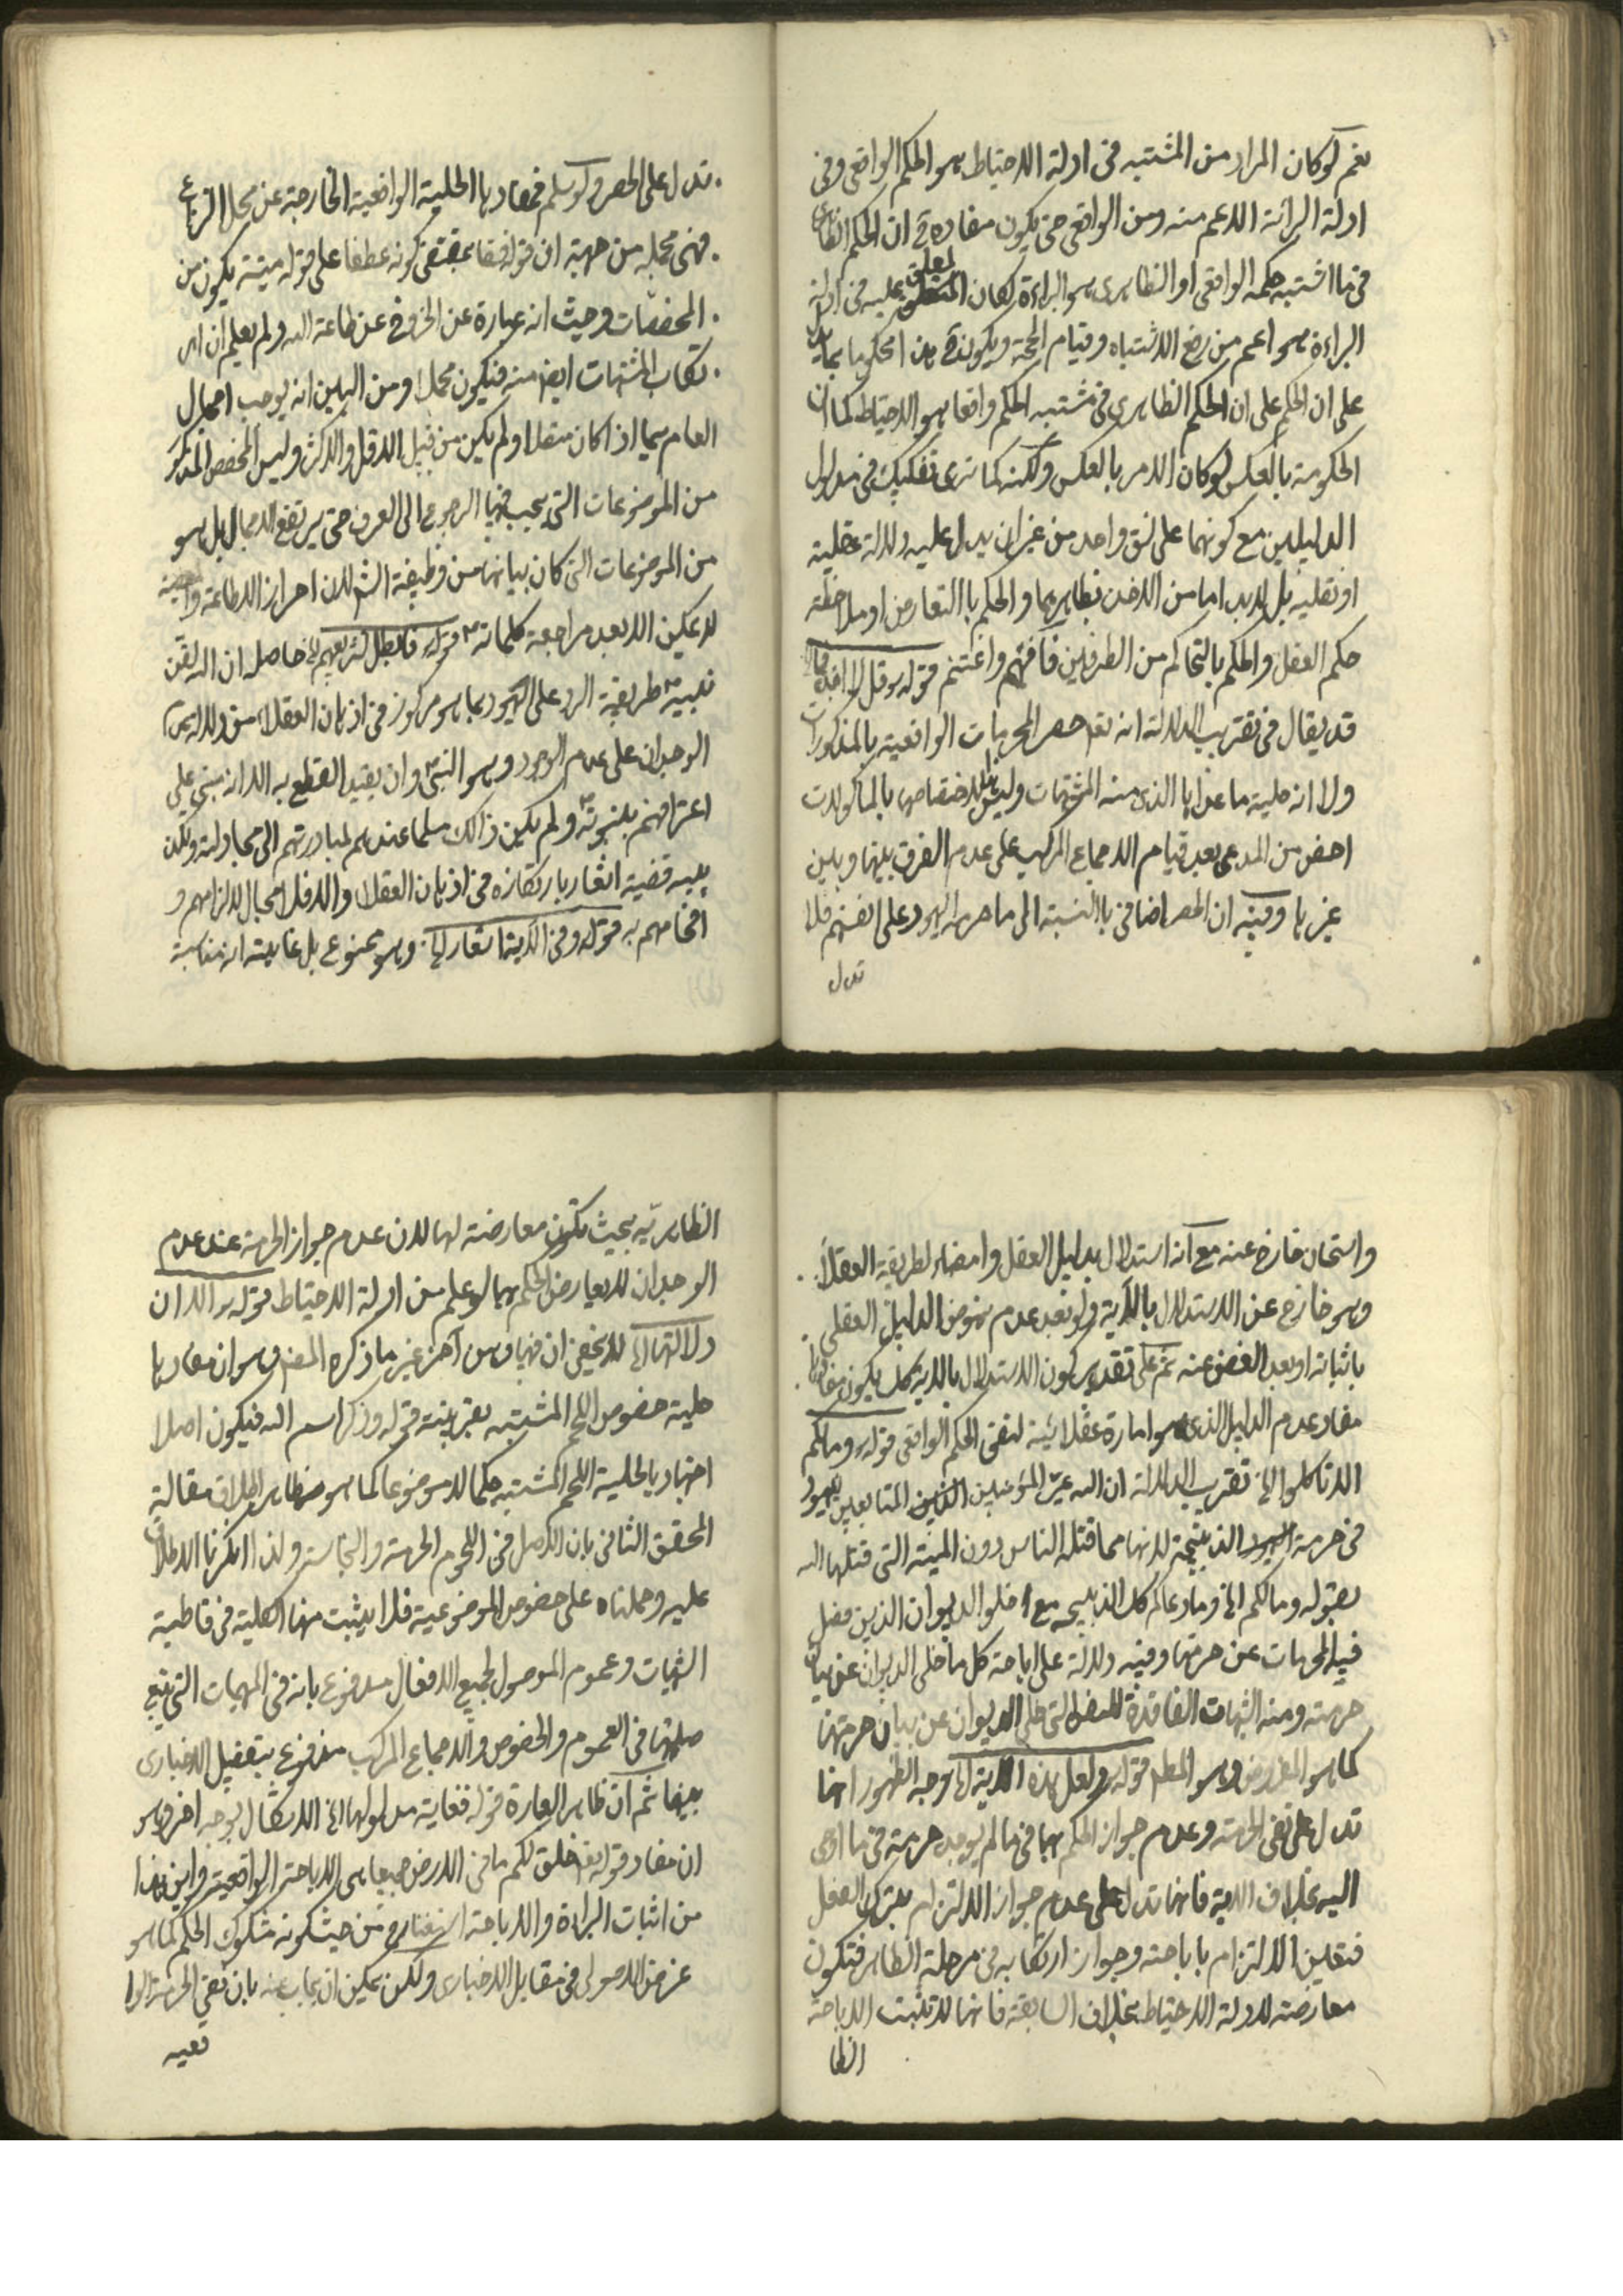 نعم لو كان المراد من المشتبه فى ادلة الاحتياط هو الحكم الواقعى وفى
ادلة البرائة الاعم منه ومن الواقعى حتى يكون مفاده ان الحكم الظاهرى
فى ما اشتبه حكمه الواقعى او الظاهرى هو البراءة لكان المعلق عليه فى ادلة
البراءة هو اعم من رفع الاشتباه وقيام الحجة ويكون محكوما بما يدل
على ان الحكم على ان الحكم الظاهرى فى مشتبه الحكم واقعا هو الاحتياط كما ان
الحكومة بالعكس لو كان الامر بالعكس ولكنه كما ترى تفكيك فى مدلول
الدليلين مع كونهما على نسق واحد من غير ان يدل عليه دلالة عقلية
او نقلية بل لابد اما من الاخذ بظاهرهما والحكم باالتعارض او ملاحظة
حكم العقل والحكم بالتحاكم من الطرفين فافهم واغتنم قوله قل لا اجد فيما
قد يقال فى تقريب الدلالة انه تعم حصر المحرمات الواقعية بالمذكورات
ولا انه حلية ما عداها الذى منه المشتبهات وليس الاختصاص بالمأكولات
اخص من المدعى بعد قيام الاجماع المركب على عدم الفرق بينها وبين
غيرها وفيه ان الحصر اضافى باالنسبة الى ما حرمه اليهود على انفسهم فلا
تدل
تدل على الحصر ولو سلم فمفادها الحلية الواقعية الخارجة عن محل النزاع
فهى مجملة من جهة ان قوله فسقا بمقتضى كونه عطفا على قوله ميتة يكون من
المخصصات وحيث انه عبارة عن الخروج عن طاعة الله ولم يعلم ان
ارتكاب المشتبهات ايضا منه فيكون مجملا ومن البين انه يوجب اجمال
العام سيما اذا كان متصلا ولم يكن من قبيل الاقل والاكثر وليس المخصص المذكور
من الموضوعات التى يجب فيها الرجوع الى العرف حتى يرتفع الاجمال بل هو
من الموضوعات التى كان بيانها من وظيفة الشرع لان احراز الاطاعة والمعصية
لا يمكن الا بعد مراجعة كلماته قوله فابطل تشريعهم الخ حاصله ان الله لقن
نبيه ص طريقة الرد على اليهود بما هو مركوز فى اذهان العقلاء من دلالة عدم
الوجدان على عدم الوجود وهو النبى وان يفيد القطع به الا انه مبنى على
اعترافهم بنبوته ولم يكن ذالك مسلما عندهم لمبادرتهم الى مجادلته ولكن
يتمه قضية اشعارها بارتكازه فى اذهان العقلا والا فلا مجال لالزامهم و
افحامهم به قوله وفى الاية اشعار الخ وهو ممنوع بل غايته انه مناسبة
واستحسان خارج عنه مع انه استدلال بدليل العقل وامضاء لطريقة العقلاء
وهو خارج عن الاستدلال بالاية ولو بعد عدم نهوض الدليل العقلى
باثباته او بعد الغض عنه ثم على تقدير كون الاستدلال بالاية كك يكون مفادها
مفاد عدم الدليل الذى هو امارة عقلائية لنفى الحكم الواقعى قوله وما لكم
الا تاكلوا الخ تقريب الدلالة ان الله عير المؤمنين المتابعين لليهود
فى حرمة الذبيحة لانها مما قتله الناس دون الميتة التى قتلها الله
بقوله وما لكم الخ وما دعاكم كل الذبيحة مع خلو الديوان الذى فصل
فيه المحرمات عن حرمتها وفيه دلالة على اباحة كل ما خلى الديوان عن بيان
حرمته ومنه الشبهات الفاقدة للنص التى خلى الديوان عن بيان حرمتها
كما هو المفروض وهو المطلوب قوله ولعل هذه الاية الخ وجه الظهور انها
تدل على نفى الحرمة وعدم جواز الحكم بها فى ما لم يوجد حرمة فى ما اوحى
اليه بخلاف الاية فانها تدل على عدم جواز الالتزام بترك الفعل
فتعين الالتزام باباحته وجواز ارتكابه فى مرحلة الظاهر فتكون
معارضة لادلة الاحتياط بخلاف السابقة فانها لا تثبت الاباحة
الظا
الظاهرية بحيث تكون معارضة لها لان عدم جواز الحرمة عند عدم
الوجدان لا يعارض الحكم بها لو علم من ادلة الاحتياط قوله الا ان
دلالتها الخ لا يخفى ان فيها وهن آخر غير ما ذكره المصنف وهو ان مفادها
حلية خصوص اللحم المشتبه بقرينة قوله وذكر اسم الله فيكون اصلا
اجتهاديا لحلية اللحم المشتبه حكما لا موضوعا كما هو ظاهر اطلاق مقالة
المحقق الثانى بان الاصل فى اللحوم الحرمة والنجاسة ولذا انكرنا الاطلاق
عليه وحملناه على خصوص الموضوعية فلا يثبت منها الكلية فى قاطبة
الشبهات وعموم الموصول لجميع الافعال مدفوع بانه فى المبهمات التى تتبع
صلتها فى العموم والخصوص والاجماع المركب مدفوع بتفصيل الاخبارى
بينها ثم ان ظاهر العبارة قوله فغاية مدلولها الخ الاشكال بوجه اخر وهو
ان مفاد قوله تع خلق لكم ما فى الارض جميعا هى الاباحة الواقعية واين هذا
من اثبات البراءة والاباحة من حيث كونه مشكوك الحكم كما هو
غرض الاصولى فى مقابل الاخبارى ولكن يمكن ان يجاب عنه بان نفى الحرمة